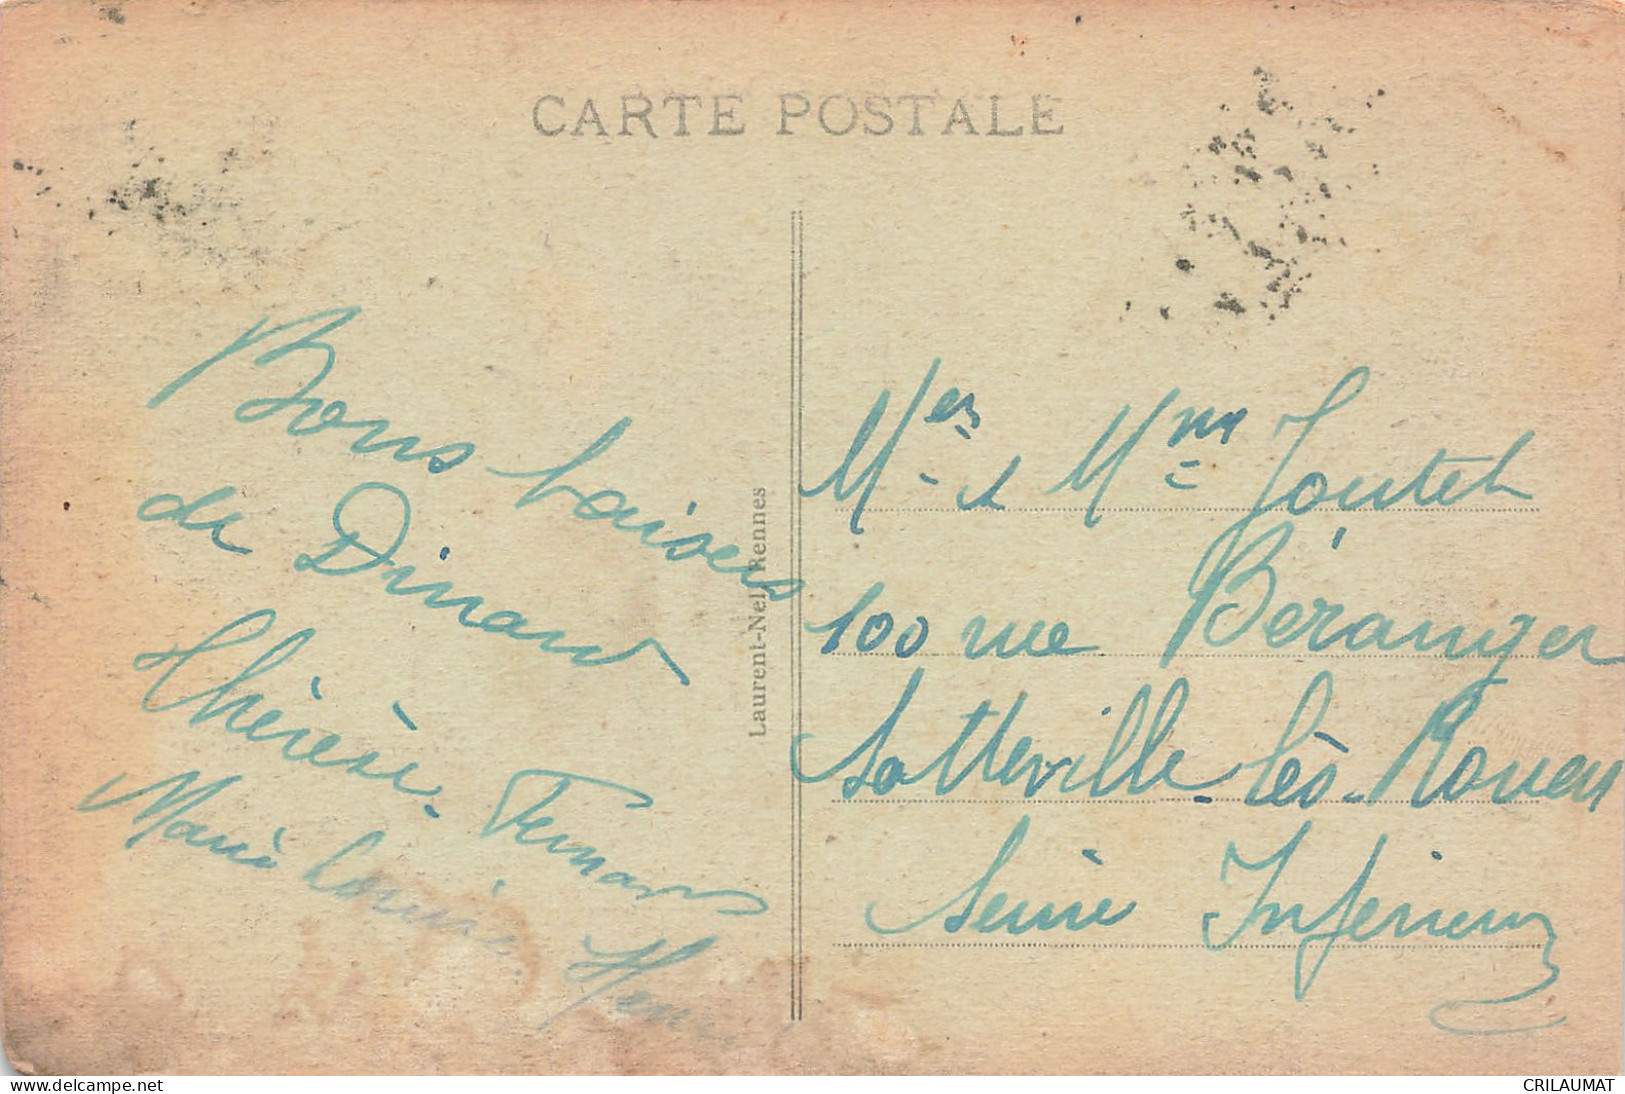 CARTE POSTALE
Bons baisers
de Dinard
Thérèse - Fernand
Marie Louise Henri
Laurent-Nel, Rennes
Mer & Mme Joutel
100 rue Béranger
Sotteville-lès-Rouen
Seine Inférieure
www.delcampe.net
CRILAUMAT